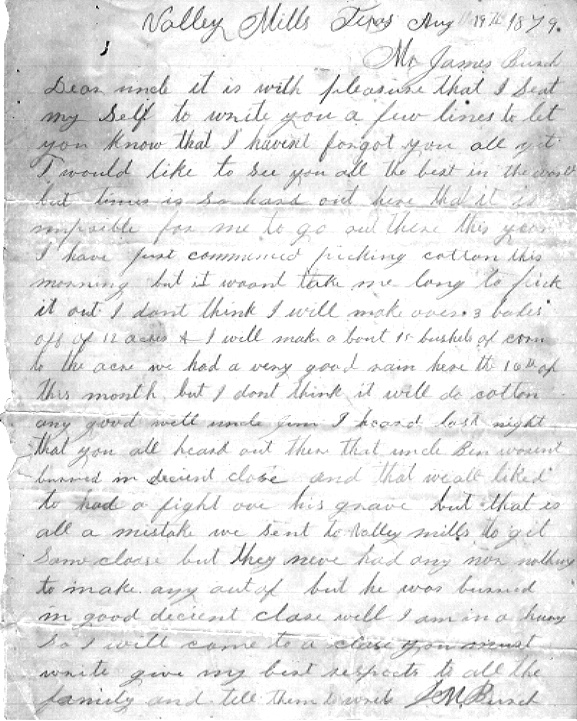 Valley Mills Texas Aug 19th 1879.
Mr James
Dear uncle it is with pleasure that I Seat
my Self to write you a few lines to let
you know that I havent forgot you all yet
I would like to see you all the best in the world
but times is So hard out here that it is
imposible for me to go out there this year
I have just commenced picking cotton this
morning but it woont take me long to pick
it out I dont think I will make over 3 bales
off of 12 acres & I will make a bout 15 bushels of corn
to the acre we had a very good rain here the 16th of
this month but I dont think it will do cotton
any good well uncle Jim I heard last night
that you all heard out ther that uncle Ben wount
burried in decient close and that we all liked
to had a fight ove his grave but that is
all a mistake we Sent to Valley mills to git
Some close but they neve had any nor nothing
to make any out of but he was burried
in good decient close well I am in a hury
So I will come to a close you must
write give my best respects to all the
family and tell them to write